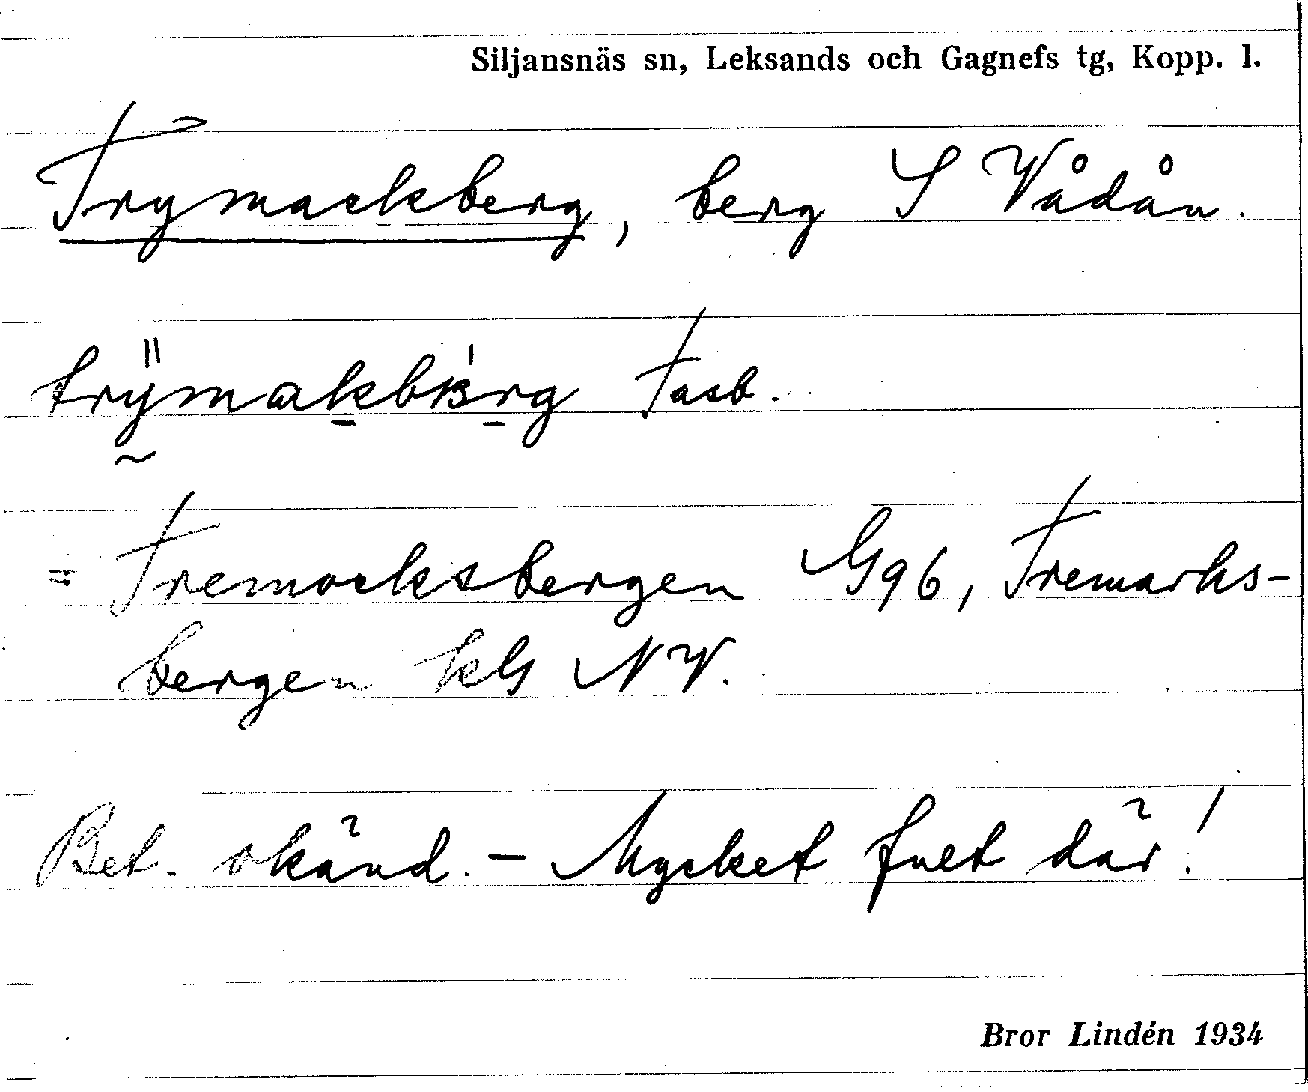 Siljansnäs sn, Leksands och Gagnefs tg, Kopp. l.
Trymackberg, berg S Vådån.
Fasb.
= Tremocksbergen G96, Tremarks-
bergen kG NV.
Bet. okänd. - Mycket fult där!
Bror Lindén 1934